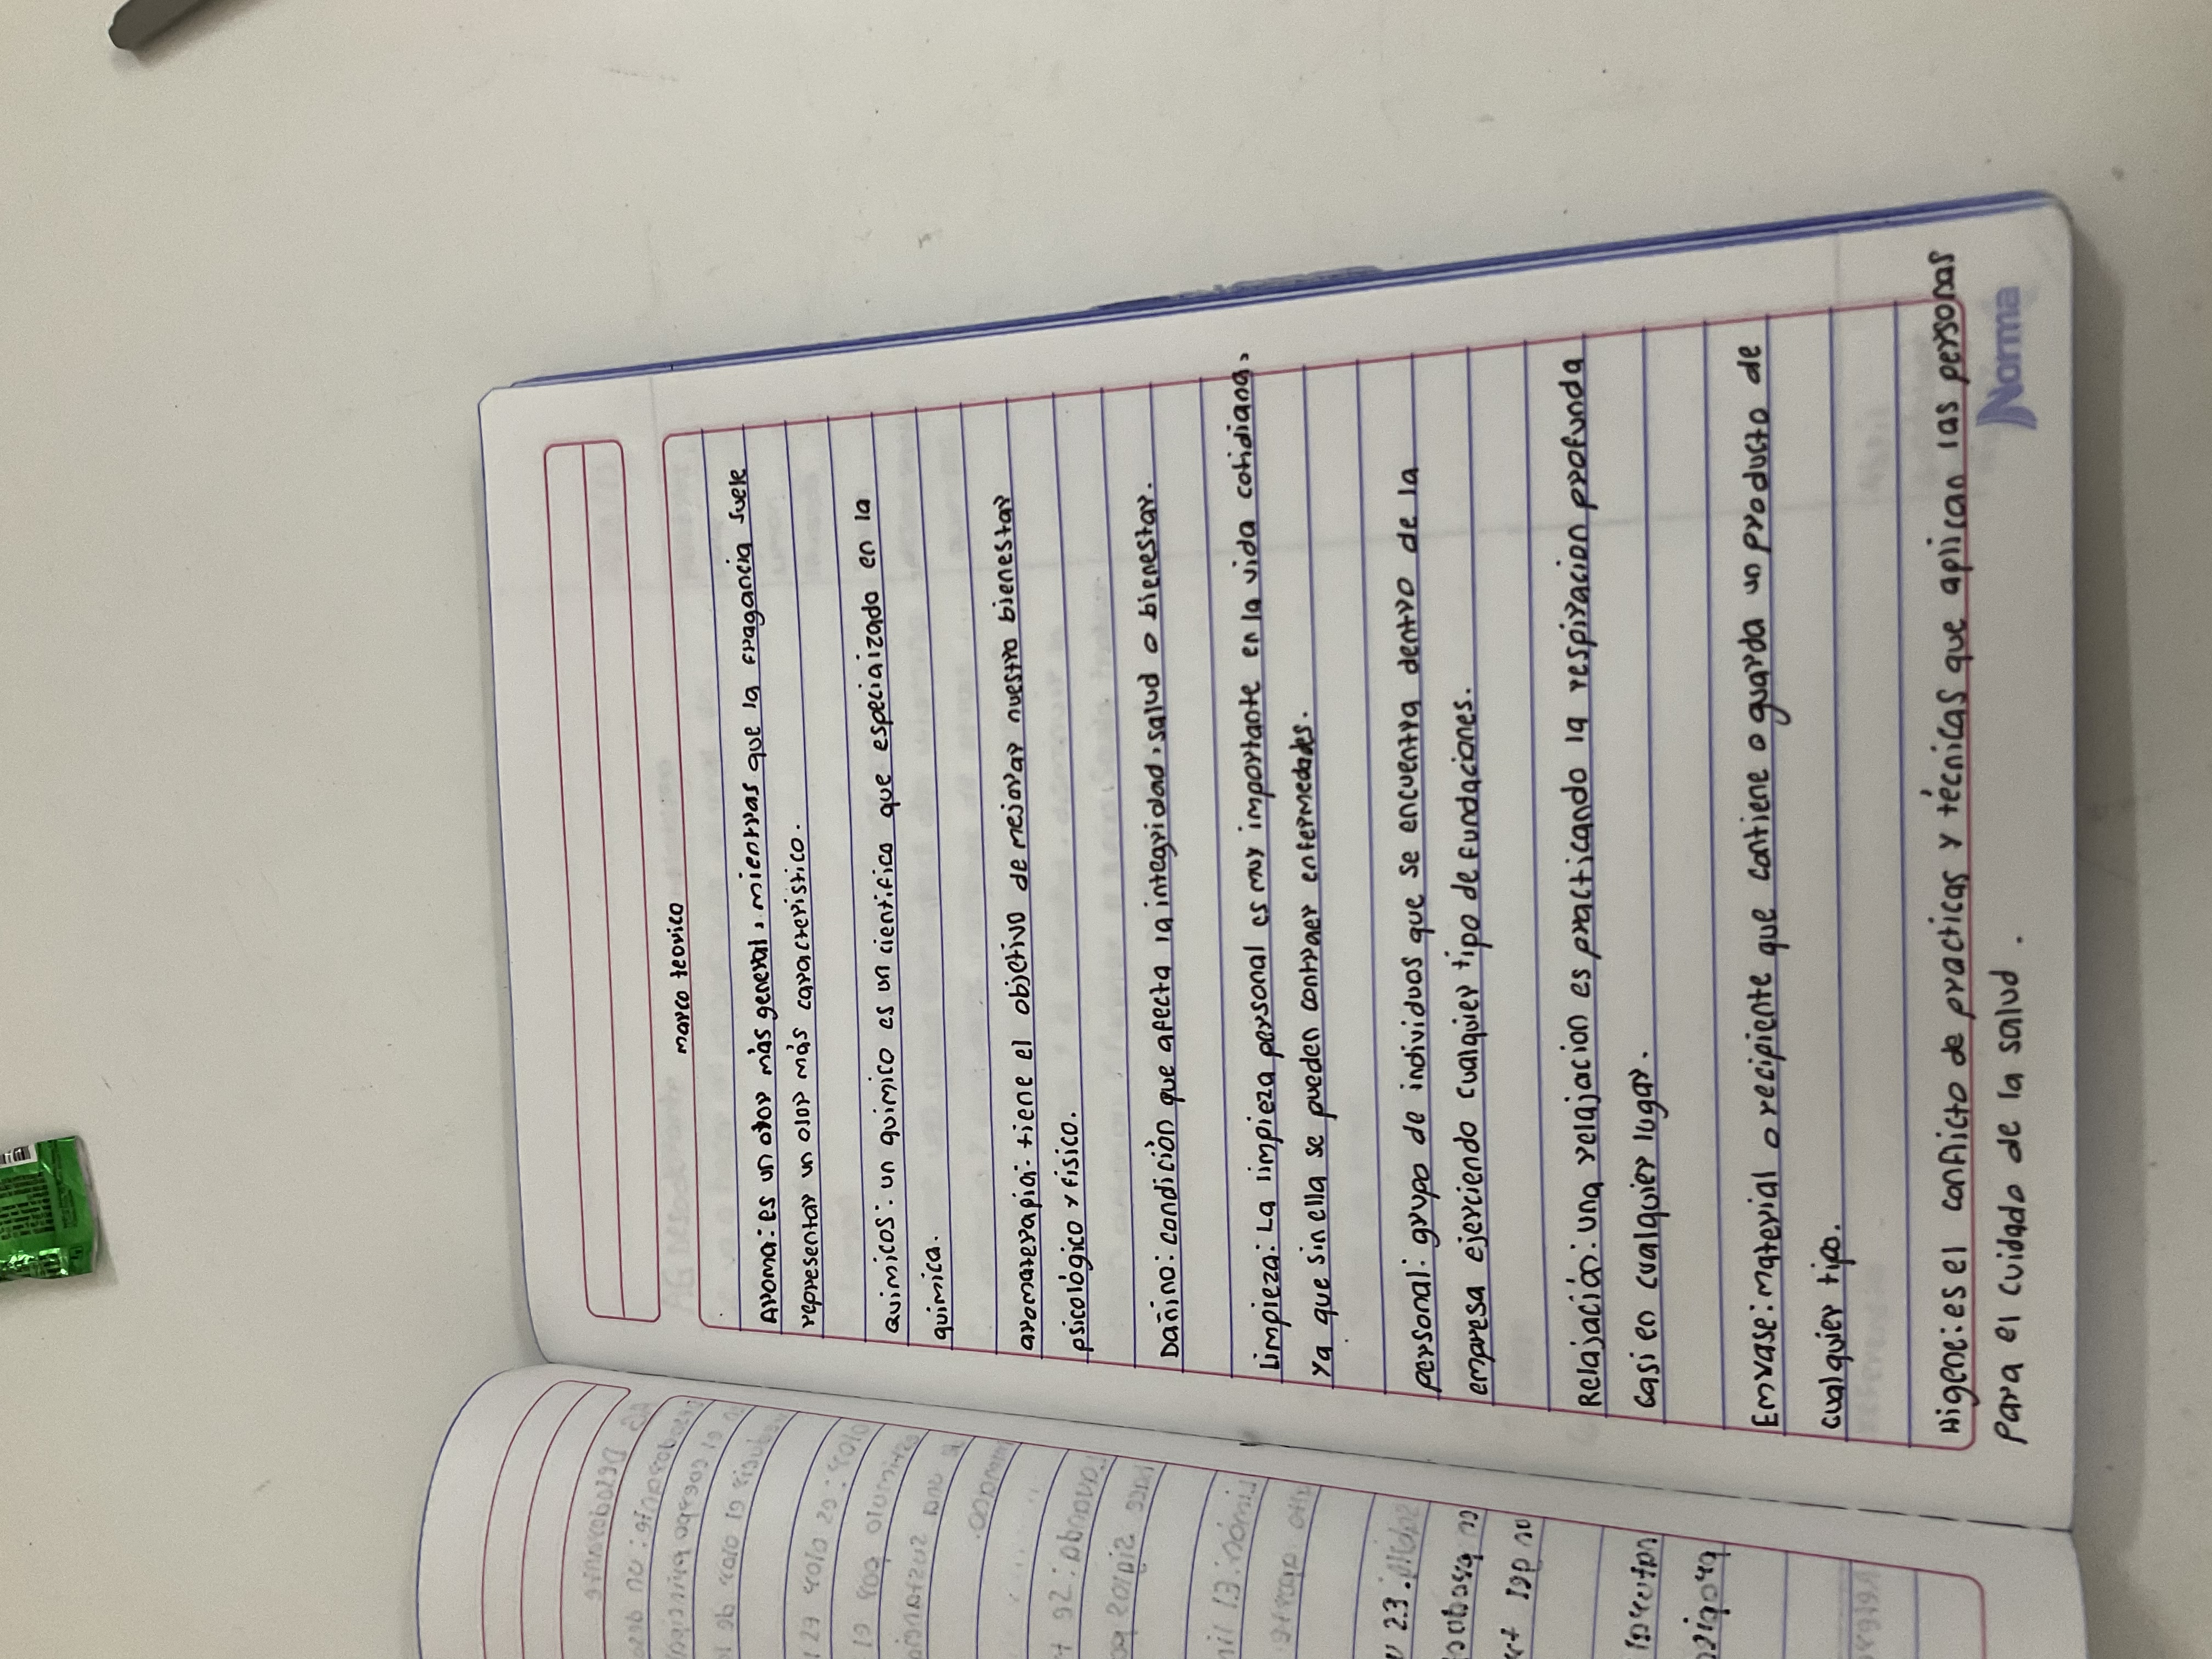 marco teorico
Aroma: es un olor màs general, mientras que la fragancia suele
representar un olor más caracteristico.
Quimicos: un quimico es un cientifico que especializado en la
quimica.
aromaterapia: tiene el objetivo de mejorar nuestro bienestar
psicológico y fisico.
Dañino: condiciòn que afecta la integridad, salud o bienestar.
Limpieza: La limpieza personal es muy importante en la vida cotidiana,
Ya que sin ella se pueden contraer enfermedades.
personal: grupo de individuos que se encuentra dentro de la
empresa ejerciendo cualquier tipo de fundaciones.
Relajación: una relajacion es practicando la respiracion profunda
casi en cualquier lugar.
Envase: material o recipiente que contiene o guarda un producto de
cualquier tipo.
Higene: es el conficto de practicas y técnicas que aplican las personas
para el cuidado de la salud.
Norma